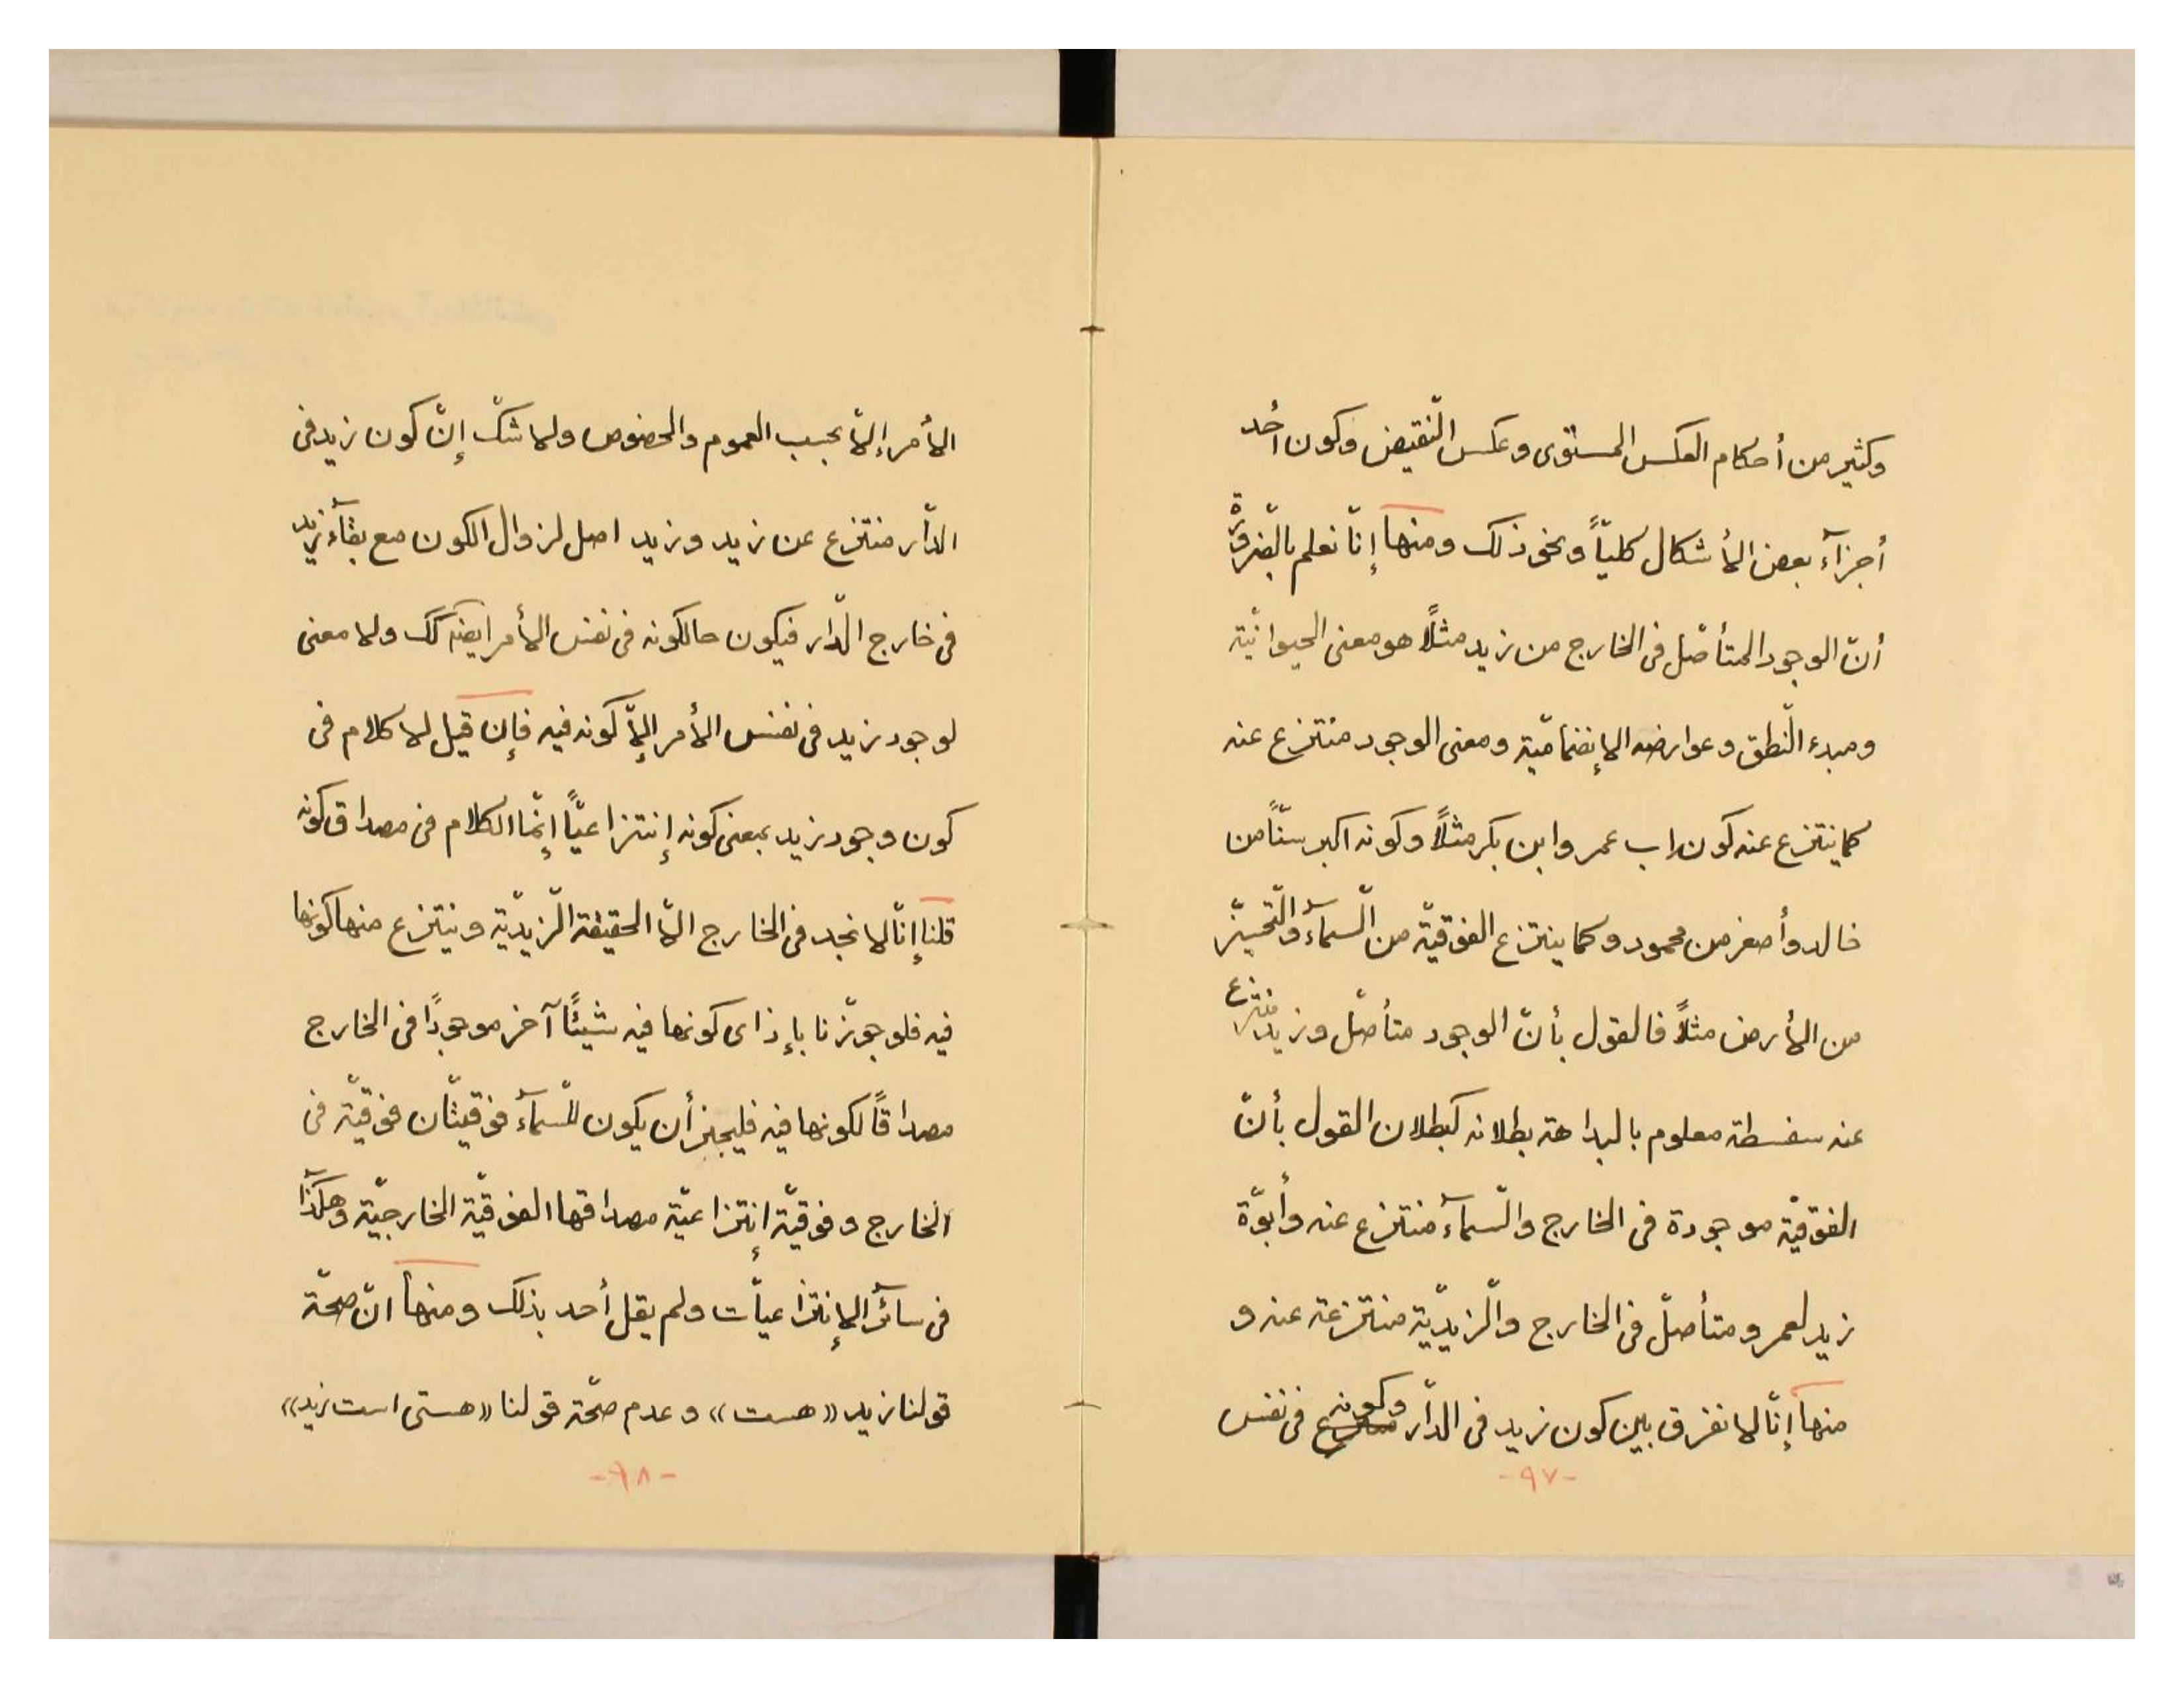 وكثير من أحكام العكس المستوى وعكس النّقيض وكون أحد
أجزآء بعض الأشكال كليّاً ونحو ذلك ومنها إنّا نعلم بالضّرورة
أنّ الوجود المتأصّل فى الخارج من زيد مثلاً هو معنى الحيوانيّة
ومبدء النّطق وعوارضه الإنضماميّة ومعنى الوجود منتزع عنه
كما ينتزع عنه كون اب عمر وابن بكر مثلاً وكونه اكبر سنّاً من
خالد وأصغر من محمود وكما ينتزع الفوقيّة من السّمآء والتّحيّز
من الأرض مثلاً فالقول بأنّ الوجود متأصّل وزيد منتزع
عنه سفسطة معلوم بالبداهة بطلانه كبطلان القول بأنّ
الفوقيّة موجودة فى الخارج والسّمآء منتزع عنه وأبوّة
زيد لعمر و متأصّل فى الخارج والزّيديّة منتزعة عنه و
منها إنّا لا نفرق بين كون زيد فى الدّار وكونه فى نفس
-٩٧-
الأمر إلاّ بحسب العموم والخصوص ولا شكّ إنّ كون زيد فى
الدّار منتزع عن زيد وزيد اصل لزوال الكون مع بقآء زيد
فى خارج الدّار فيكون حال كونه فى نفس الأمر ايضه كك ولا معنى
لوجود زيد فى نفس الأمر إلاّ كونه فيه فإن قيل لا كلام فى
كون وجود زيد بمعنى كونه إنتزاعيّاً إنّما الكلام فى مصداق كونه
قلنا إنّا لا نجد فى الخارج الاّ الحقيقة الزّيديّة وينتزع منها كونها
فيه فلو جوّزنا بإذاى كونها فيه شيئاً آخر موجودًا فى الخارج
مصداقاً لكونها فيه فليجز أن يكون للسّمآء فوقيّتان فوقيّة فى
الخارج وفوقيّة إنتزاعيّة مصداقها الفوقيّة الخارجيّة وهكذا
فى سآئر الإنتزاعيّات ولم يقل أحد بذلك ومنها انّ صحّة
قولنا زيد «هست» وعدم صحّة قولنا «هستى است زيد»
-٩٨-